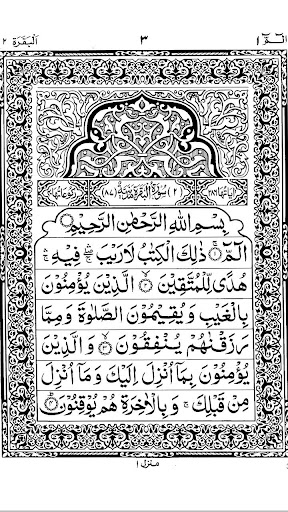 الٓمّٓ ١ ٣ اَلْبَقَرَة ٢
اٰيَاتُهَا ٢٨٦ (٢) سُوْرَةُ الْبَقَرَةِ مَدَنِيَّةٌ (٨٧) رُكُوْعَاتُهَا
بِسْمِ اللّٰهِ الرَّحْمٰنِ الرَّحِيْمِ
الٓمّٓ ۚ‏ ﴿۱﴾ ذٰلِكَ الْكِتٰبُ لَا رَيْبَ ۛۖ فِيْهِ ۛۚ
هُدًى لِّلْمُتَّقِيْنَ ۙ‏ ﴿۲﴾ الَّذِيْنَ يُؤْمِنُوْنَ
بِالْغَيْبِ وَ يُقِيْمُوْنَ الصَّلٰوةَ وَ مِمَّا
رَزَقْنٰهُمْ يُنْفِقُوْنَ ۙ‏ ﴿۳﴾ وَ الَّذِيْنَ
يُؤْمِنُوْنَ بِمَاۤ اُنْزِلَ اِلَيْكَ وَ مَاۤ اُنْزِلَ
مِنْ قَبْلِكَ ۚ وَ بِالْاٰخِرَةِ هُمْ يُوْقِنُوْنَ ؕ‏ ﴿۴﴾
منزل ١